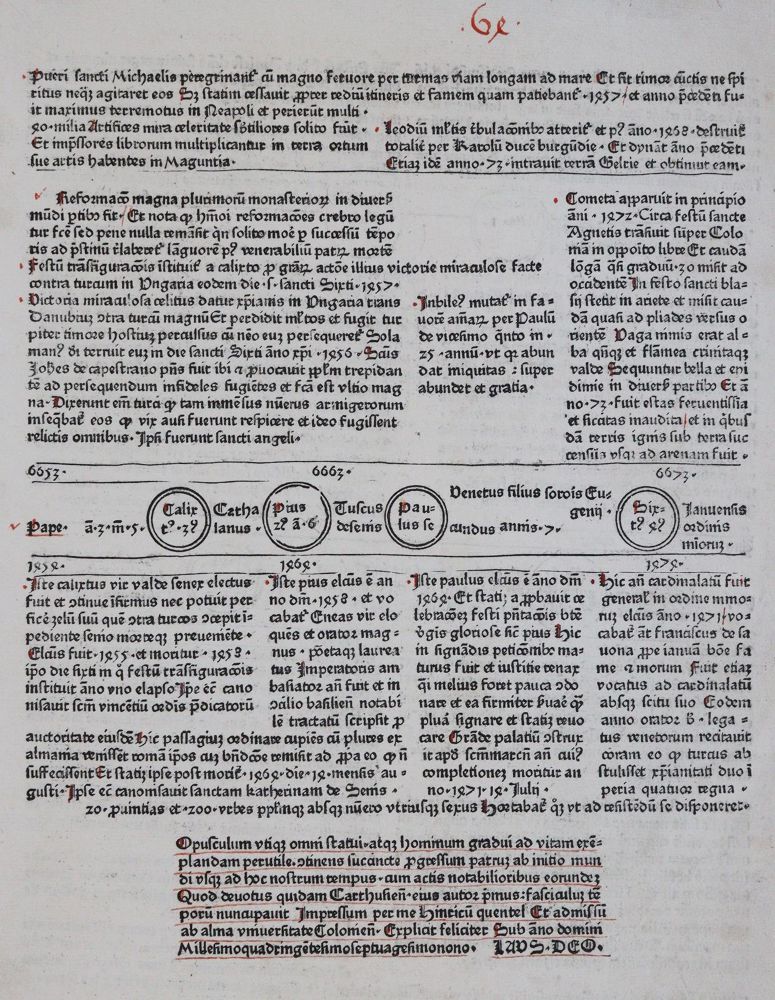 64.
Pueri sancti Michaelis peregrinant̃ cū magno feruore per turmas viam longam ad mare Et fit timor cũctis ne spi
ritus neq̃ʒ agitaret eos Sʒ statim cessauit ꝓpter tediũ itineris et famem quam patiebant̃ · 1457 et anno p̃cedẽti fu-
it maximus terremotus in Neapoli et perierũt multi ·
40 · milia Artifices mira celeritate sb̃tiliores solito fiũt ·
Et imp̃ssores librorum multiplicantur in terra ortum
sue artis habentes in Maguntia ·
Leodiũ ml̃tis t̃bulac̃oĩbo atterit̃ et pꝰ ãno · 1468 · destruit̃
totalit̃ per Karolũ ducẽ burgũdie · Et dynãt ãno p̃cedẽti
Etiaʒ idẽ anno · 73 · intrauit terrã Gelrie et obtinuit eam ·
Reformac̃o magna plurimorũ monasterioꝝ in diuers̃
mũdi ꝑtibo fit · Et nota ꝙ hm̃oi reformac̃oes crebro legũ
tur fc̃e sed pene nulla remãsit qñ solito moe ꝑ successũ tẽpo
ris ad p̃stinũ t̃laberet̃ lãguorẽ pꝰ venerabiliũ patꝝ mortẽ
Festũ trãsfiguracõis istituit̃ a calixto ꝓ grãꝝ actõe illius victorie miraculose facte
contra turcum in Vngaria eodem die · s · sancti Sixti · 1457 ·
Victoria miraculosa celitus datur xp̃ianis in Vngaria trans
Danubiuʒ ɔtra turcũ magnũ Et perdidit ml̃tos et fugit tur
piter timore hostiuʒ perculsus cũ nẽo euʒ persequeret̃ Sola
manꝰ dĩ terruit euʒ in die sancti Sixti ãno xp̃i · 1456 · Scũs
Joh̃es de capestrano pñs fuit ibi ⁊ ꝓuocauit pp̃lm̃ trepidan
tẽ ad persequendum infideles fugiẽtes et fc̃a est vltio mag
na · Dixerunt em̃ turci ꝙ tam immẽsus nũerus armigerorum
inseq̃bat̃ eos ꝙ vix ausi fuerunt respicere et ideo fugissent
relictis omnibus · Ip̃si fuerunt sancti angeli ·
Iubileꝰ mutat̃ in fa-
uorẽ am̃aꝝ per Paulũ
de vicesimo q̃nto in ·
25 · annũ · vt qꝛ abun
dat iniquitas : super
abundet et gratia ·
Cometa apparuit in principio
ãni · 1472 · Circa festũ sancte
Agnetis trãsiuit sup̃er Colo
niã in opp̃oito libre Et caudã
lõgã q̃si graduũ · 30 misit ad
occidentẽ In festo sancti bla-
sij stetit in ariete et misit cau-
dã quasi ad pliades versus o
rientẽ Vaga nimis erat al-
ba qñqʒ et flãmea crinitaqʒ
valde Sequuntur bella et epi
dimie in diuers̃ partibo Et ã
no · 73 · fuit estas feruentissĩa
et siccitas inaudita et in q̃bus
dã terris ignis sub terra suc
census vsqʒ ad arenam fuit ·
6653 · 6663 · 6673 ·
Pape · ã · 3 · m̃ · 5 ·
Calix
tꝰ · 3ꝰ
Catha
lanus ·
Pius
2ꝰ ã · 6
Tuscus
desenis
Pau-
lus se
Venetus filius sororis Eu-
genij ·
cundus annis · 7 ·
Six-
tꝰ 4ꝰ
Januensis
ordinis
minoꝝ ·
1454 · 1464 · 1474 ·
Iste calixtus vir valde senex electus
fuit et ɔtinue ĩfirmus nec potuit per
ficẽ zelũ suũ quẽ ɔtra turcos ɔcepit ĩ-
pediente senio morteqʒ preueniẽte ·
Elc̃us fuit · 1455 · et moritur · 1458 ·
ip̃o die sixti in q̃ festũ trãsfiguracõis
instituit ãno vno elapso Ip̃e eẽ cano
nisauit scm̃ vincẽtiũ ordĩs p̃dicatorũ
auctoritate eiusdẽ
Iste pius elc̃us ẽ an
no dm̃ · 1458 · et vo
cabat̃ Eneas vir elo
quẽs et orator mag-
nus · p̃oetaqʒ laurea
tus Imperatoris am
basiator añ fuit et in
ɔcilio basilieñ notabi
lẽ tractatũ scripsit ꝓ
Hic passagiuʒ ordinare cupiẽs cũ plures ex
almania venisset romã ip̃os cuʒ bñdc̃oe remisit ad ꝓpa eo ꝙ ñ
suffecissent Et statĩ ipse post morit̃ · 1464 · die · 14 · mensis au-
gusti · Ipse eẽ canonisauit sanctam katherinam de Senis ·
Iste paulus elc̃us ẽ ãno dm̃
1464 · Et statĩ aꝓbauit ce
lebrac̃oeʒ festi p̃ñtac̃ois btẽ
v̓gis gloriose sic̃ pius Hic
in signãdis petic̃oĩbo ma-
turus fuit et iustitie tenax
qi melius foret pauca ɔdo
nare et ea firmiter s̃uaẽ qꝫ
pluã signare et statĩ reuo
care Grãde palatiũ ɔstrux
it apd̓ scm̃marcũ añ cuiꝰ
completionẽ moritur an
no · 1471 · 14 · Julij ·
Hic añ cardinalatũ fuit
general̓ in ordine mino-
ruʒ elc̃us ãno · 1471 · vo-
cabat̃ añt Franciscus de sa
uona ꝓpe ianuã bõe fa
me ⁊ morum Fuit etiaʒ
vocatus ad cardinalatũ
absqʒ scitu suo Eodem
anno orator s̓ · lega-
tus venetorum recitauit
coram eo ꝙ turcus ab
stulisset xp̃ianitati duo ĩ
peria quatuor regna ·
20 · ꝓuintias et · 200 · vrbes pp̃linqʒ absqʒ nũero vtriusqʒ sexus Hortabat̃ qʒ vt ad resistẽdũ se disponeret ·
Opusculum vtiqʒ omni statui · atqʒ hominum gradui ad vitam exẽ-
plandam perutile · ɔtinens succincte ꝓgressum patruʒ ab initio mun
di vsqʒ ad hoc nostrum tempus · cum actis notabilioribus eorundeʒ
Quod deuotus quidam Carthusieñ · eius autor p̃mus : fasciculuʒ tẽ
porũ nuncupauit Impressum per me Hinricũ quentel Et admissũ
ab alma vniuersitate Colonieñ · Explicit feliciter Sub ãno domini
Millesimoquadringẽtesimoseptuagesimonono · LAVS · DEO ·